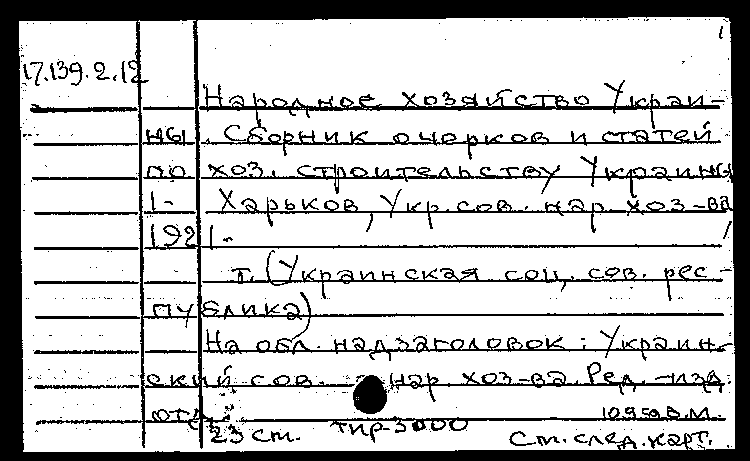 1
17.139.2.12
Народное хозяйство Украи-
ны. Сборник очерков и статей
по хоз. строительству Украины
1- Харьков, Укр. сов. нар. хоз-ва
1921-
т. (Украинская соц. сов. рес-
публика)
На обл. надзаголовок: Украин-
ский сов. нар. хоз-ва. Ред.-изд.
отд.
23 см. тир-3000
См. след. карт.